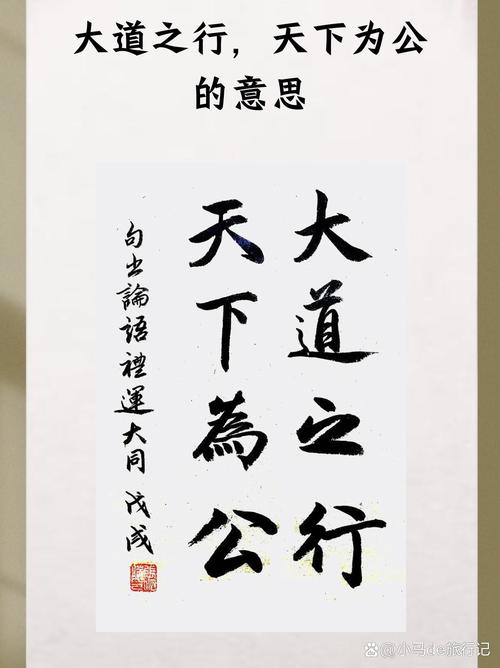 大道之行，天下为公
的意思
大道之行
天下為公
句出論語禮運大同 戊戌
小马de旅行记